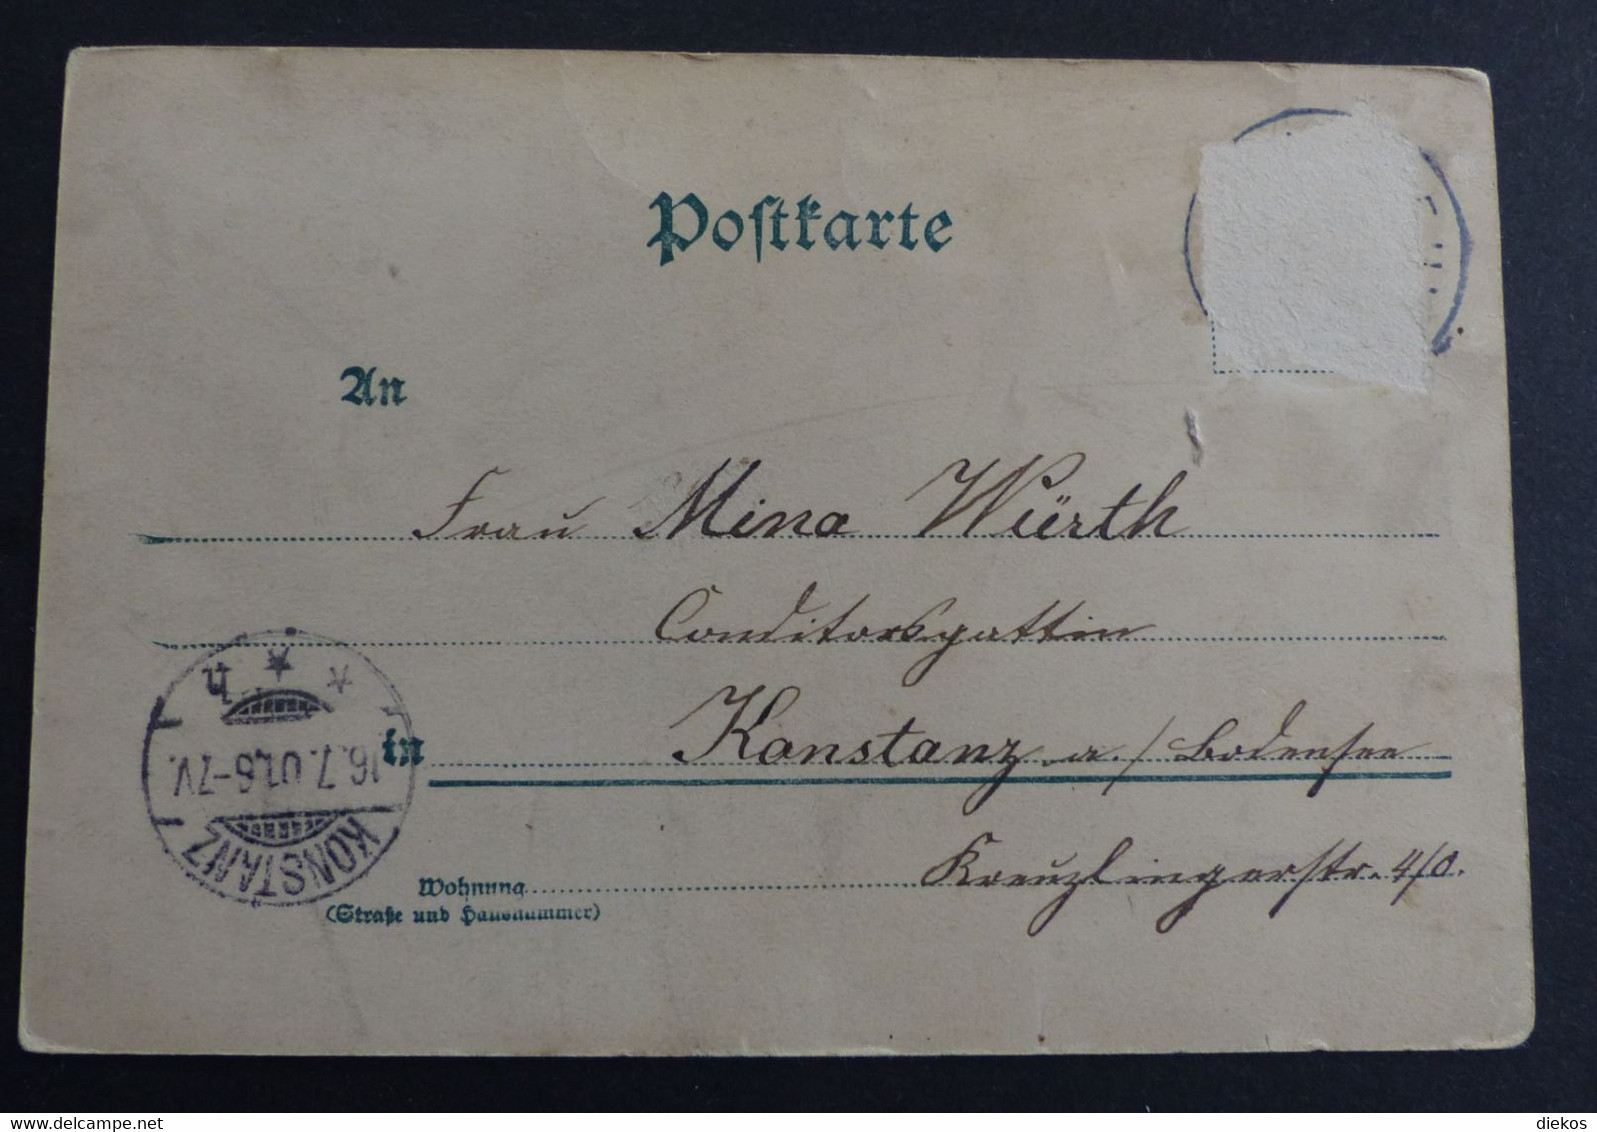 Postkarte
An
Frau Mina Würth
Conditorsgattin
in Konstanz a./Bodensee
Kreuzlingerstr. 4/0.
Wohnung
(Straße und Hausnummer)
16.7.01.6-7V.
KONSTANZ
diekos